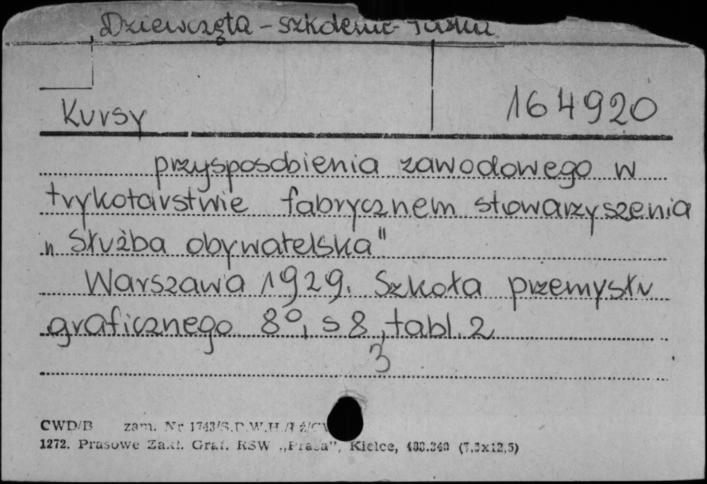 Dziewczęta - szkolenie-
164920
Kursy
przysposobienia zawodowego w
trykotarstwie fabrycznem stowarzyszenia
„Służba obywatelska"
Warszawa 1929. Szkoła przemysłu
graficznego 8°, s 8, tabl. 2
3
CWD/B zam. Nr 1743/S.P.W.H.
1272. Prasowe Zakł. Graf. RSW „Prasa", Kielce, (7,5x12,5)